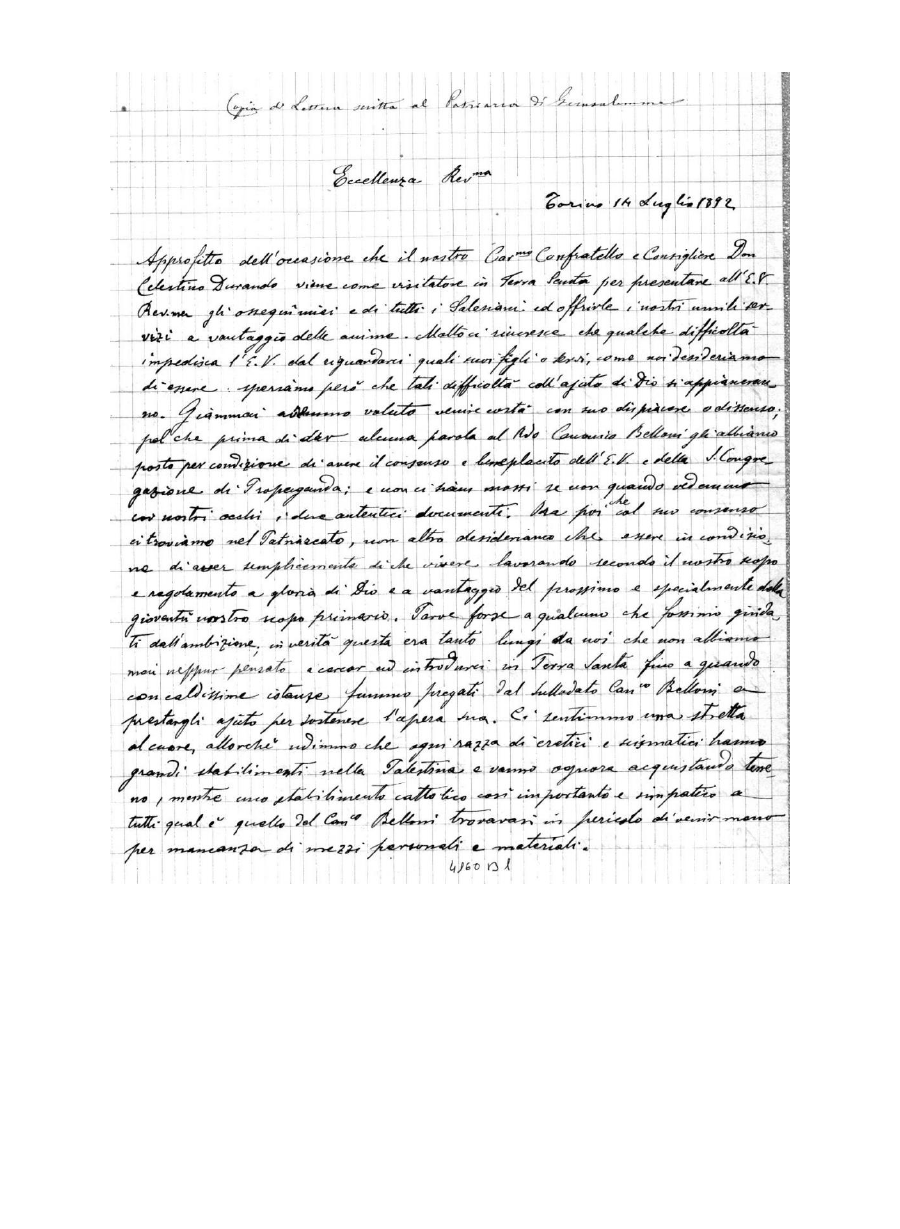 Copia di Lettera scritta al Patriarca di Gerusalemme
Eccellenza Rev.ma
Torino 14 Luglio 1892
Approfitto dell'occasione che il nostro Car.mo Confratello e Consigliere Don
Celestino Durando viene come visitatore in Terra Santa per presentare all'E.V.
Rev.ma gli ossequi miei e di tutti i Salesiani ed offrirle i nostri umili ser-
vizi a vantaggio delle anime. Molto ci rincresce che qualche difficoltà
impedisca l'E.V. dal riguardarci quali suoi figli o servi, come noi desideriamo
di essere. speriamo però che tali difficoltà coll'ajuto di Dio si appianeran-
no. Giammai avremmo voluto venire costà con suo dispiacere o dissenso;
pel che prima di dar alcuna parola al Rdo Canonico Belloni gli abbiamo
posto per condizione di avere il consenso e beneplacito dell'E.V. e della S. Congre-
gazione di Propaganda; e non ci siam mossi se non quando vedemmo
coi nostri occhi i due autentici documenti. Ora poi che col suo consenso
ci troviamo nel Patriarcato, non altro desideriamo che essere in condizio-
ne di aver semplicemente di che vivere lavorando secondo il nostro scopo
e regolamento a gloria di Dio e a vantaggio del prossimo e specialmente della
gioventù nostro scopo primario. Parve forse a qualcuno che fossimo guida-
ti dall'ambizione, in verità questa era tanto lungi da noi che non abbiamo
mai neppur pensato a cercar ad introdurci in Terra Santa fino a quando
con caldissime istanze fummo pregati dal sullodato Can.co Belloni a
prestargli ajuto per sostenere l'opera sua. Ci sentimmo una stretta
al cuore, allorchè udimmo che ogni razza di eretici e scismatici hanno
grandi stabilimenti nella Palestina e vanno ognora acquistando terre-
no, mentre uno stabilimento cattolico così importante e simpatico a
tutti qual è quello del Can.co Belloni trovavasi in pericolo di venir meno
per mancanza di mezzi personali e materiali.